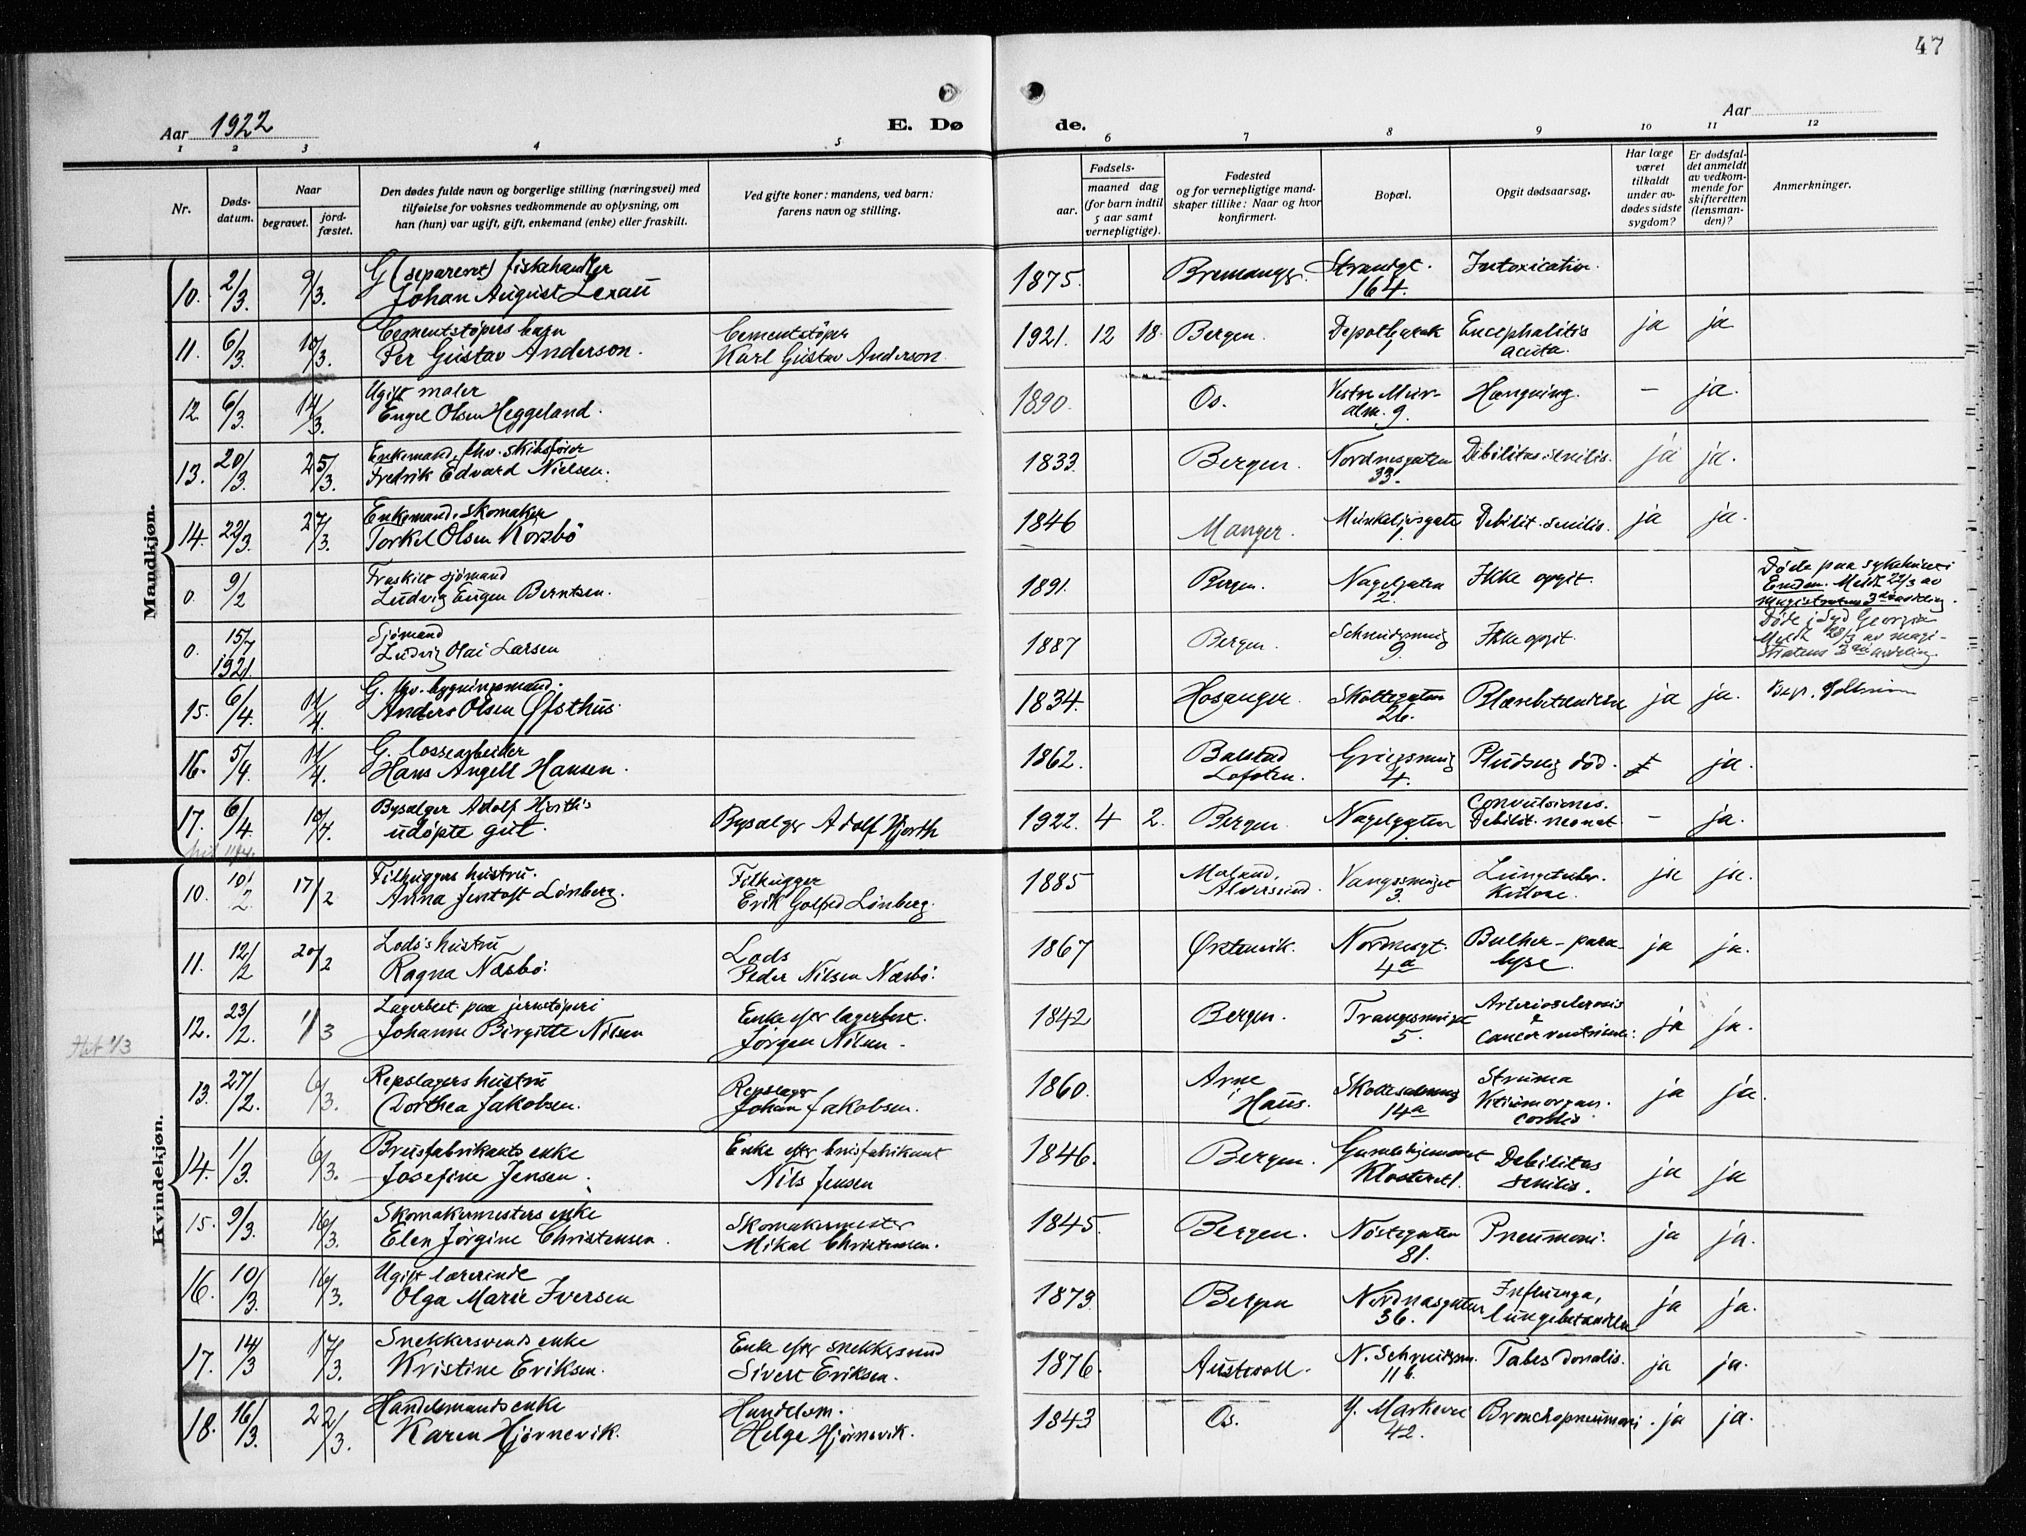 47
Aar 1922
E. Dø
de.
Aar
1 2 3 4 5 6 7 8 9 10 11 12
Nr.
Døds-
datum.
Naar
begravet.
jord-
fæstet.
Den dødes fulde navn og borgerlige stilling (næringsvei) med
tilføielse for voksnes vedkommende av oplysning, om
han (hun) var ugift, gift, enkemand (enke) eller fraskilt.
Ved gifte koner: mandens, ved barn:
farens navn og stilling.
Fødsels-
aar.
maaned dag
(for barn indtil
5 aar samt
vernepligtige).
Fødested
og for vernepligtige mand-
skaper tillike: Naar og hvor
konfirmert.
Bopæl.
Opgit dødsaarsag.
Har læge
været
tilkaldt
under av-
dødes sidste
sygdom?
Er dødsfal-
det anmeldt
av vedkom-
mende for
skifteretten
(lensman-
den)?
Anmerkninger.
Mandkjøn.
G (separeret) fiskehandler Strandgt. Intoxication.
10. 2/3 9/3. Johan August Lexau 1875. Bremanger 164.
Cementstøpers barn Cementstøper
11. 6/3. 10/3. Per Gustav Anderson. Karl Gustav Anderson 1921. 12 18. Bergen. Depotbarak Encephalitis ja ja
acuta.
Ugift maler Vestre Mur-
12 6/3. 14/3. Engel Olsen Heggeland. 1890. Os. alm. 9. Hængning. – ja.
Enkemand, fhv. skibsfører
13. 20/3. 25/3. Fredrik Edvard Nielsen. 1833. Bergen. Nordnesgaten Debilitas senilis. ja ja.
33.
Enkemand, skomaker
14. 22/3. 27/3. Torkel Olsen Korsbö 1846 Manger. Munkelivsgate Debilit. senilis. ja ja.
1
Fraskilt sjømand Døde paa sykehuset i
0. 9/2 Ludvig Eugen Berntsen. 1891. Bergen. Nagelgaten Ikke opgit. Emden. Meldt 22/3 av
2. magistratens 3die avdeling.
Sjømand Døde i Syd Georgia
0. 15/7 1921. Ludvig Olai Larsen 1887 Bergen. 9. Ikke opgit. Meldt 28/3 av magi-
stratens 3die avdeling.
G. fhv. bygningsmand.
15. 6/4. 11/4. Anders Olsen Øfsthus. 1834. Hosanger. Skottegaten Blærebetændelse ja ja.
26.
G. lossearbeider
16. 5/4. 11/4. Hans Angell Hansen. 1862. Balstad Griegsmug Pludselig död. ja.
Lofoten. 4.
Bysælger Adolf Hjorth's Convulsiones.
17. 6/4. 10/4. udøpte gut. Bysælger Adolf Hjorth 1922. 4 2. Bergen Nagelgaten Debilit. neonat. – ja.
Kvindekjøn.
Filhuggers hustru. Filhugger
10. 10/2. 17/2 Anna Jentoft Lönberg. Erik Golfred Lönberg. 1885 Vangsmuget Lungetuber- ja ja.
Alversund. 3. kulose.
Lods's hustru Lods
11. 12/2 20/2 Ragna Næsbö. Peder Nilsen Næsbö. 1867 Østenvik. Nordnesgt. Bulbær-para- ja ja.
4a lyse.
Lagerbest. paa jernstøperi Enke efter lagerbest.
12. 23/2. 1/3 Johanne Birgitte Nilsen Jörgen Nilsen. 1842 Bergen. Trangesmuget Arteriosclerosis ja ja.
5. & cancer ventriculi.
Repslagers hustru Repslager
13. 27/2. 6/3. Dorthea Jakobsen. Johan Jakobsen. 1860. Arne Struma ja ja.
i Haus. 14a Vitium organ.
cordis
Brusfabrikants enke Enke efter brusfabrikant
14. 1/3. 6/3. Josefine Jensen. Nils Jensen 1846. Bergen. Gamlehjemmet Debilitas ja ja
Klosteret 1. senilis.
Skomakermesters enke Skomakermester
15. 9/3. 16/3. Elen Jørgine Christensen. Mikal Christensen. 1845. Bergen. Nöstegaten Pneumoni. ja ja.
81.
Ugift lærerinde Influenza,
16. 10/3. 16/3. Olga Marie Iversen 1873. Bergen Nordnesgaten lungebetændelse ja ja.
36.
Snekkersvends enke Enke efter snekkersvend
17. 14/3 17/3. Kristine Eriksen. Sivert Eriksen. 1876. Austevoll. 11b. Tabes dorsalis. ja ja.
Handelsmands enke Handelsm.
18. 16/3. 22/3. Karen Hjørnevik. Helge Hjørnevik. 1843 Os. Y. Markevei Bronchopneumoni. ja ja.
42.